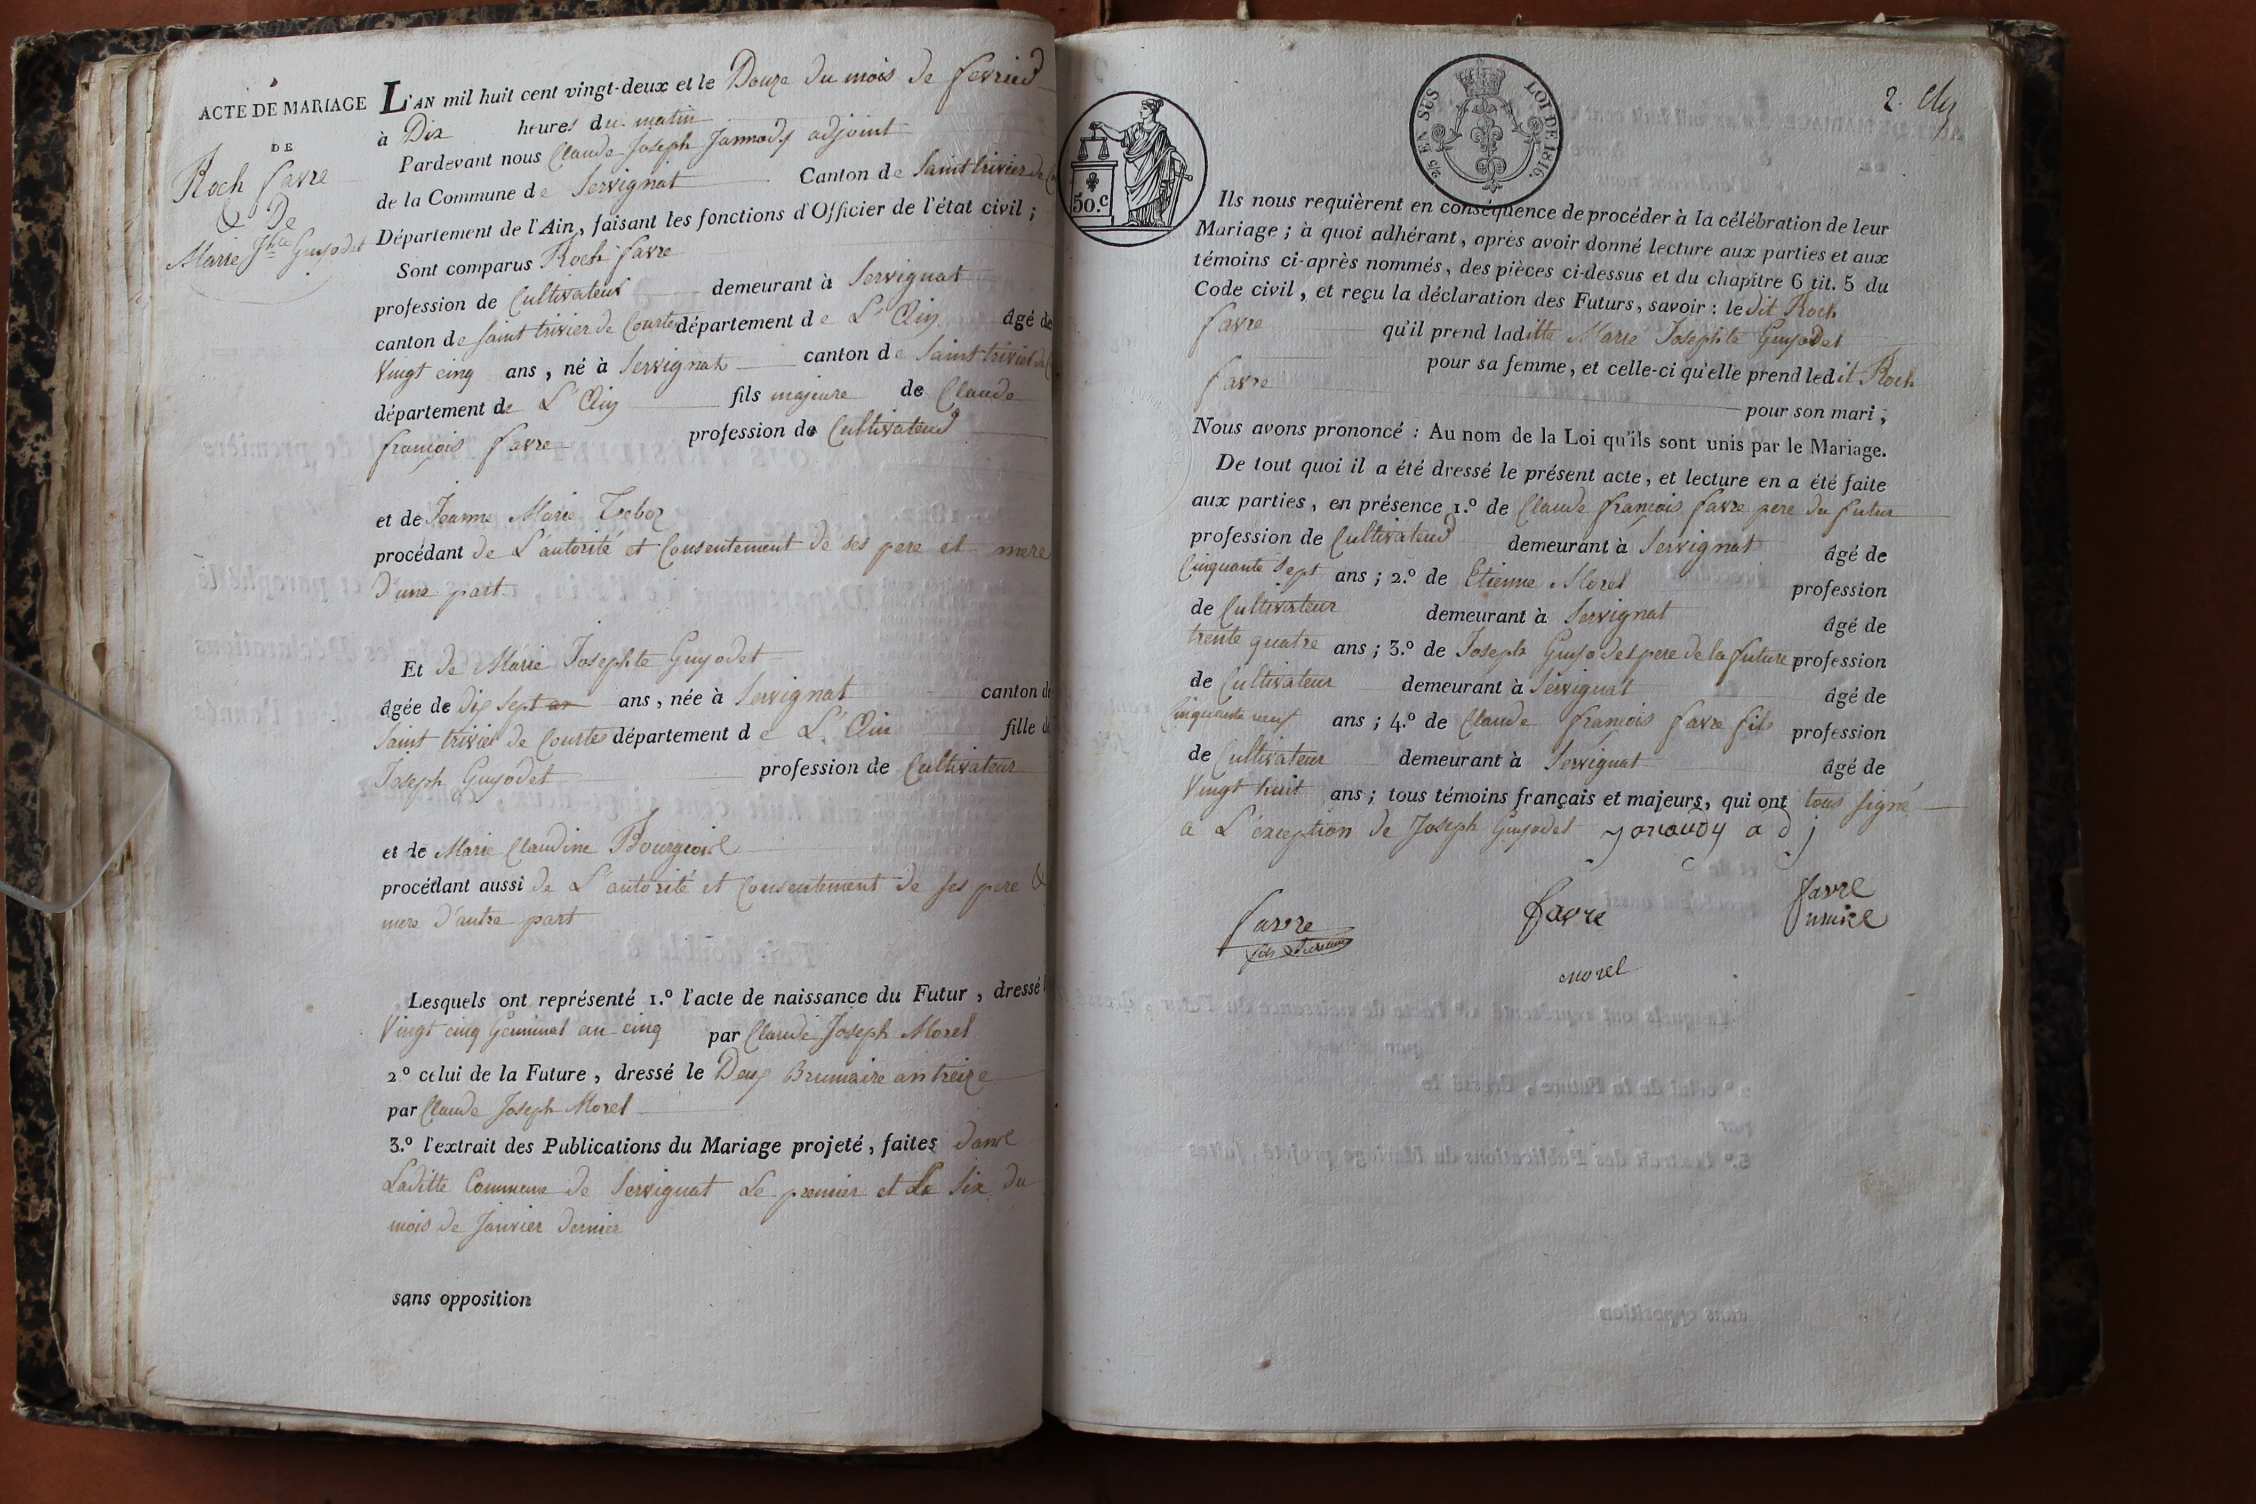 ACTE DE MARIAGE
DE
Roch favre
& De
Marie Jhte Guyodet
L'AN mil huit cent vingt-deux et le Douze du mois de fevrier
à Dix heures du matin
Pardevant nous Claude Joseph adjoint
de la Commune de Servignat Canton de Saint trivier de
Département de l'Ain, faisant les fonctions d'Officier de l'état civil ;
Sont comparus Roch favre
profession de Cultivateur demeurant à Servignat
canton de Saint trivier de Courtes département de L'Ain âgé de
Vingt cinq ans, né à Servignat canton de Saint trivier de
département de L'Ain fils majeure de Claude
françois favre profession de Cultivateur
et de Jeanne Marie Teboz
procédant de L'autorité et Consentement de ses pere et mere
D'une part
Et de Marie Josephte Guyodet
âgée de dix sept an ans, née à Servignat canton de
Saint trivier de Courtes département de L'Ain fille de
Joseph Guyodet profession de Cultivateur
et de Marie Claudine Bourgeois
procédant aussi de L'autorité et Consentement de ses pere &
mere D'autre part
Lesquels ont représenté 1.º l'acte de naissance du Futur, dressé
Vingt cinq Germinal an cinq par Claude Joseph Morel
2º celui de la Future, dressé le Deux Brumaire an treize
par Claude Joseph Morel
3.º l'extrait des Publications du Mariage projeté, faites dans
Laditte Commune de Servignat Le premier et Le Six du
mois de Janvier dernier
sans opposition
50.c
25 EN SUS
LOI DE 1816.
2.
Ils nous requièrent en conséquence de procéder à la célébration de leur
Mariage ; à quoi adhérant, après avoir donné lecture aux parties et aux
témoins ci-après nommés, des pièces ci-dessus et du chapitre 6 tit. 5 du
Code civil, et reçu la déclaration des Futurs, savoir : le dit Roch
favre qu'il prend laditte Marie Josephte Guyodet
pour sa femme, et celle-ci qu'elle prend ledit Roch
favre pour son mari ;
Nous avons prononcé : Au nom de la Loi qu'ils sont unis par le Mariage.
De tout quoi il a été dressé le présent acte, et lecture en a été faite
aux parties, en présence 1.º de Claude françois favre pere du futur
profession de Cultivateur demeurant à Servignat âgé de
Cinquante Sept ans ; 2.º de Etienne Morel profession
de Cultivateur demeurant à Servignat âgé de
trente quatre ans ; 3.º de Joseph Guyodet pere de la future profession
de Cultivateur demeurant à Servignat âgé de
Cinquante neuf ans ; 4.º de Claude françois favre fils profession
de Cultivateur demeurant à Servignat âgé de
Vingt huit ans ; tous témoins français et majeurs, qui ont tous signé
a L'exception de Joseph Guyodet adj
favre
favre
favre
morel